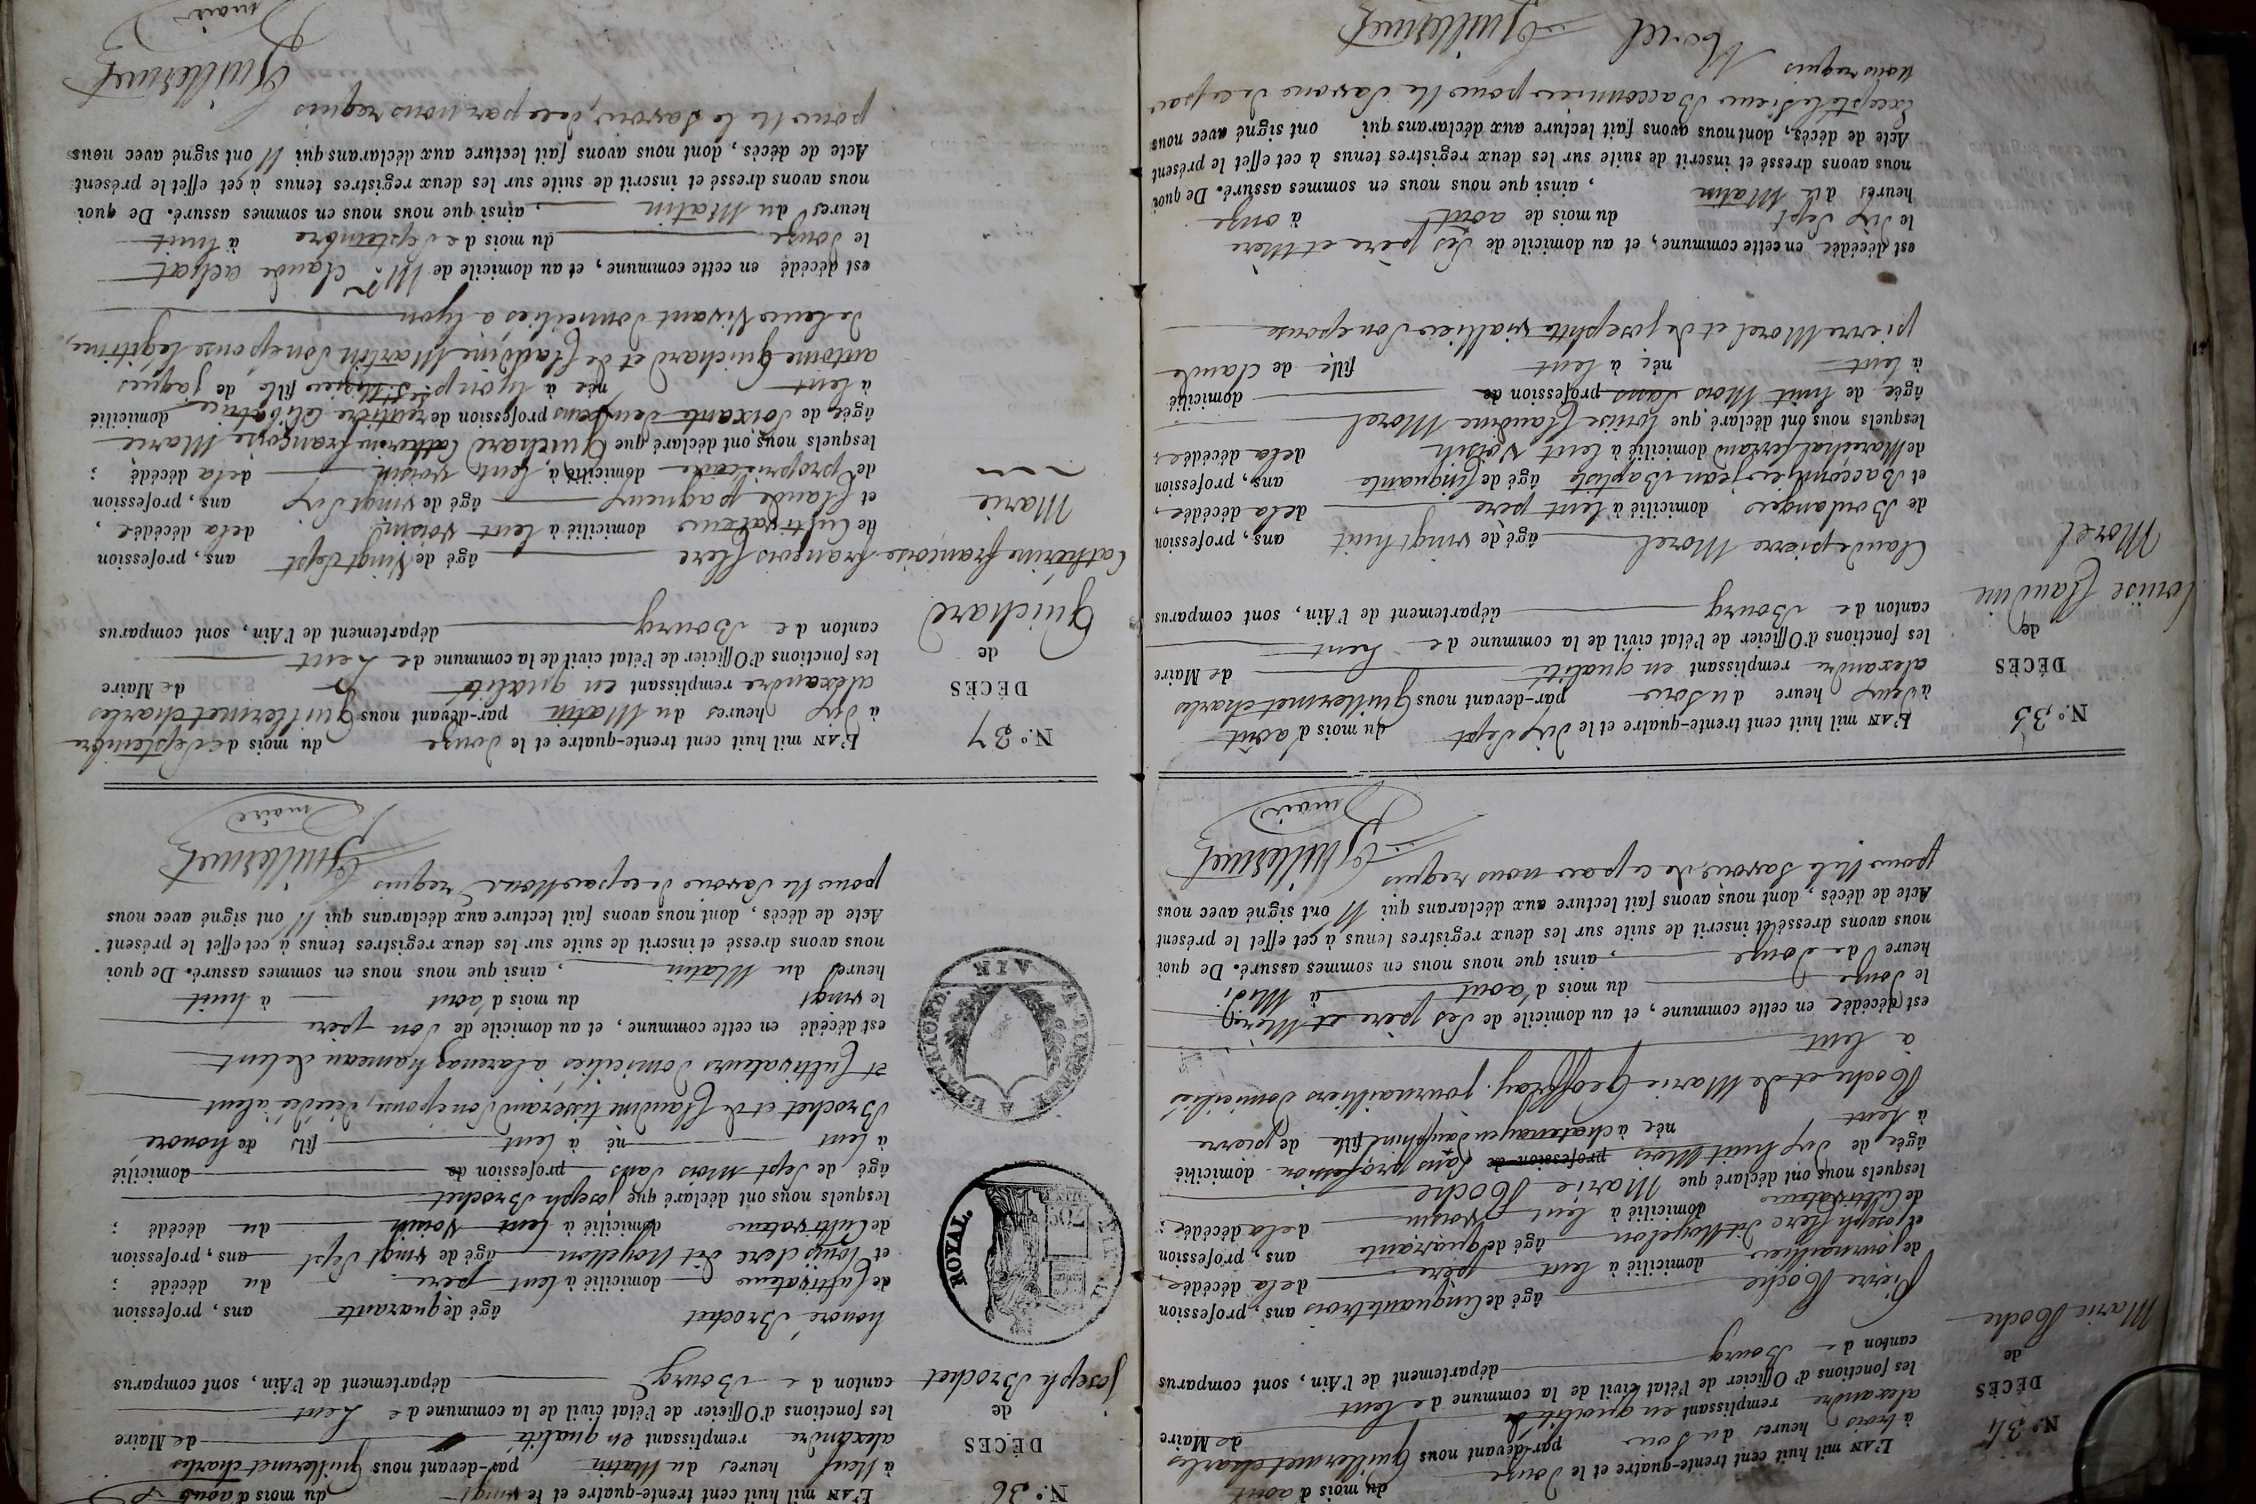 N.º 34
DÉCÈS
de
Marie Roche
L'AN mil huit cent trente-quatre et le douze du mois d'aout
à trois heures du soir par-devant nous Guillermet charles
alexandre remplissant en qualité de Maire
les fonctions d'Officier de l'état civil de la commune de lent
canton de Bourg département de l'Ain, sont comparus
Pierre Roche âgé de Cinquante trois ans, profession
de journallier domicilié à lent père de la décédée,
et joseph clere dit Noyelon âgé de quarante ans, profession
de Cultivateur domicilié à lent voisin de la décédée;
lesquels nous ont déclaré que Marie Roche
âgée de dix huit Mois profession de sans profession domicilié
à lent née à chatenay en dauphiné fille de pierre
Roche et de Marie Geoffray journalliers domiciliés
à lent
est décédée en cette commune, et au domicile de Ses père et Mère
le douze du mois d'aout à Midi
heure de douze, ainsi que nous nous en sommes assuré. De quoi
nous avons dressé et inscrit de suite sur les deux registres tenus à cet effet le présent
Acte de décès, dont nous avons fait lecture aux déclarans qui N ont signé avec nous
pour Ne le Savoir, de ce par nous requis
Guillermet
maire
N.º 35
DÉCÈS
de
louise Claudine
Morel
L'AN mil huit cent trente-quatre et le dix Sept du mois d'août
à deux heure du soir par-devant nous Guillermet charles
alexandre remplissant en qualité de Maire
les fonctions d'Officier de l'état civil de la commune de Lent
canton de Bourg département de l'Ain, sont comparus
Claude pierre Morel âgé de vingt huit ans, profession
de Boulanger domicilié à lent père de la décédée,
et Bacconnier jean Baptiste âgé de Cinquante ans, profession
de Marechal ferrand domicilié à lent voisin de la décédée;
lesquels nous ont déclaré que louise Claudine Morel
âgée de huit Mois sans profession de domicilié
à lent née à lent fille de claude
pierre Morel et de josephte vialliex Son epouse
est décédée en cette commune, et au domicile de Ses père et Mère
le dix Sept du mois de aout à onze
heures du Matin, ainsi que nous nous en sommes assuré. De quoi
nous avons dressé et inscrit de suite sur les deux registres tenus à cet effet le présent
Acte de décès, dont nous avons fait lecture aux déclarans qui ont signé avec nous
Excepté le Sieur Bacconnier pour Ne Savoir de ce par
nous requis
Morel Guillermet
N.º 36
DÉCÈS
de
joseph Brochet
ROYAL.
A L'EXTRAORD.
AIN
L'AN mil huit cent trente-quatre et le vingt du mois d'aout
à Neuf heures du Matin par-devant nous Guillermet charles
alexandre remplissant en qualité de Maire
les fonctions d'Officier de l'état civil de la commune de Lent
canton de Bourg département de l'Ain, sont comparus
honoré Brochet âgé de quarante ans, profession
de Cultivateur domicilié à lent père du décédé;
et louis clere dit Noyellon âgé de vingt Sept ans, profession
de Cultivateur domicilié à lent voisin du décédé;
lesquels nous ont déclaré que joseph Brochet
âgé de Sept Mois Sans profession de domicilié
à lent né à lent fils de honoré
Brochet et de Claudine tisserand son épouse, décédée à lent
et Cultivateurs domiciliés à larenaz hameau de lent
est décédé en cette commune, et au domicile de Son père
le vingt du mois d'aout à huit
heures du Matin, ainsi que nous nous en sommes assuré. De quoi
nous avons dressé et inscrit de suite sur les deux registres tenus à cet effet le présent
Acte de décès, dont nous avons fait lecture aux déclarans qui N ont signé avec nous
pour Ne Savoir de ce par Nous requis
Guillermet
maire
N.º 37
DÉCÈS
de
Guichard
Catherine françoise
Marie
L'AN mil huit cent trente-quatre et le douze du mois de Septembre
à dix heures du Matin par-devant nous Guillermet charles
alexandre remplissant en qualité de Maire
les fonctions d'Officier de l'état civil de la commune de Lent
canton de Bourg département de l'Ain, sont comparus
françois Clere âgé de Vingt Sept ans, profession
de Cultivateur domicilié à lent voisin de la décédée,
et Claude pagneux âgé de vingt Six ans, profession
de propriétaire domicilié à lent voisin de la décédé;
lesquels nous ont déclaré que Guichard Catherine françoise Marie
âgée de Soixante deux ans profession de rentière Célibatrice domicilié
à lent née à lyon fille de jaques
antoine Guichard et de Claudine Martin Son épouse légitime,
de leur Vivant domiciliés à lyon
est décédé en cette commune, et au domicile de Mr. Claude
le douze du mois de Septembre à huit
heures du Matin, ainsi que nous nous en sommes assuré. De quoi
nous avons dressé et inscrit de suite sur les deux registres tenus à cet effet le présent
Acte de décès, dont nous avons fait lecture aux déclarans qui N ont signé avec nous
pour Ne le Savoir, de ce par nous requis
Guillermet
maire